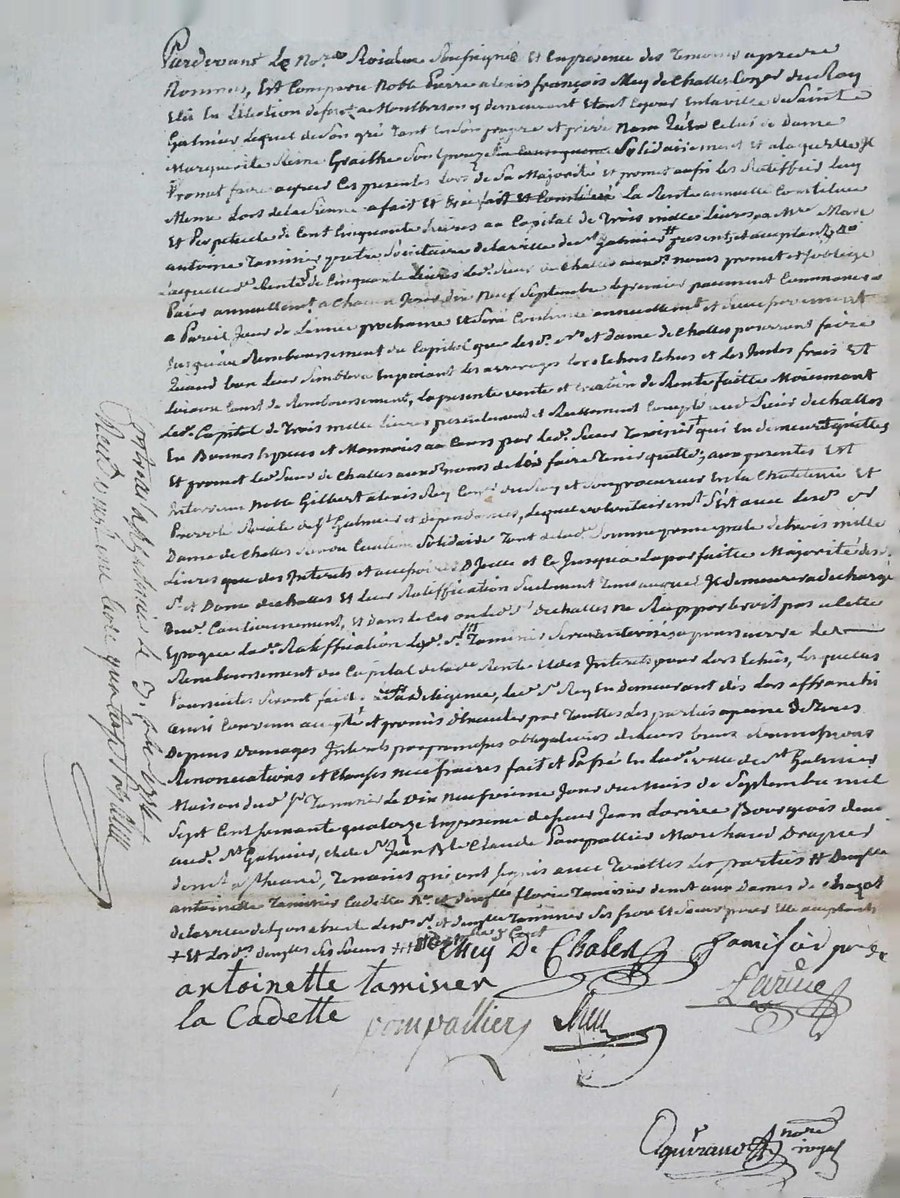 Pardevant Le No.re Roial Soussigné Et En presence des Temoins apres
Nommés, Est Comparu Noble Pierre alexis françois Mey de Challes Con.er du Roy
Elû en L'Election de forez a Montbrison y demeurant Etant Ce jour en la ville de Sainte
Galmier Lequel de Son gré tant en Son propre et privé Nom qu'en Celui de Dame
Marguerite Reine Grailhe Son Epouze Solidairement et a laquelle Il
Promet faire agréer Ces presentes Lors de Sa Majorité et promet aussi les Ratiffier Luy
Meme Lors de la Sienne a fait Et Créé La Rente annuelle Constituée
Et Perpetuelle de Cent Cinquante Livres au Capital de Trois mille Livres a M.re Marc
antoine Tamisier pretre Societaire de la ville de S.t Galmier present et acceptant
Laquelle Rente de Cinquante Livres led. Sieur de Challes aux d. noms promet et s'oblige
Païer annuellem.t a Chacun Jour dix Neuf Septembre Le premier paiement Commencera
a Pareil Jour de L'année prochaine Et Sera Continué annuellem.t et Successivement
Jusqu'au Remboursement du Capital que Lesd. S.r et Dame de Challes pourront faire
Quand bon Leur Semblera En paiant les arrerages Lors Echus et Les Justes frais Et
Loiaux Couts de Remboursement, La presente vente et creation de Rente faitte Moiennant
Led. Capital de Trois mille Livres presentement et Reellement Compté aud. Sieur de Challes
En Bonnes Especes et Monnoies au Cours par led. Sieur Tamisier qui En demeure quitte
Et promet led. Sieur de Challes aux d. noms de L'en faire Tenir quitte; aux presentes Est
Intervenu Noble Gilbert alexis Rey Con.er du Roy et Son procureur En la Chatelenie Et
Prevoté Roiale de S.t Galmier et dependances, Lequel volontairem.t S'est avec Lesd. S.r et
Dame de Challes Rendu Caution Solidaire Tant de lad. Somme principale de trois mille
Livres que des Interets et accessoires D'Icelle et Ce Jusqu'a La parfaitte Majorité des d.
S.r et Dame de Challes Et leur Ratiffication Seulement Tems auquel Il demeurera dechargé
dud. Cautionnement, Et dans Le Cas ou led. S.r de Challes ne Rapporteroit pas a Cette
Epoque lad. Ratiffication Led. S.r Tamisier Sera autorisé a poursuivre le
Remboursement du Capital de lad. Rente Et des Interets pour Lors Echus, Lesquelles
Poursuites Seront faites a Sa Diligence, led. S.r Rey En demeurant dès Lors affranchi
ainsi Convenu accepté et promis Executer par Touttes Les parties a peine de Tous
Depens Domages Interets par promesses obligations de Leurs biens Soumissions
Renonciations et Clauses necessaires fait et Passé En lad. ville de S.t Galmier
Maison dud. S.r Tamisier Le Dix Neufvieme Jour du Mois de Septembre mil
Sept Cent Soixante quatorze En presence de Sieur Jean Larüe Bourgeois dem.t
aud. S.t Galmier, et de S.r Jean B.te Claude Pompallier Marchand Drapier
dem.t a Temoins qui ont Signé avec Touttes Les parties Dem.elle
antoinette Tamisier Cadette et dem.elle florie Tamisier dem.t aux Dames de
de la ville de Lyon absente Lesd. S.r et dem.elle Tamisier Ses frere Et Soeur pour Elle acceptants
+ Et Lesd. dem.elles Ses Soeurs
Mey De Chales
Tamisier p.re
antoinette tamisier
la Cadette
Larüe
pompallier
Rey
Controlé a S.t Galmier le
Reçu vingt une livre
Aguiraud no.re
royal